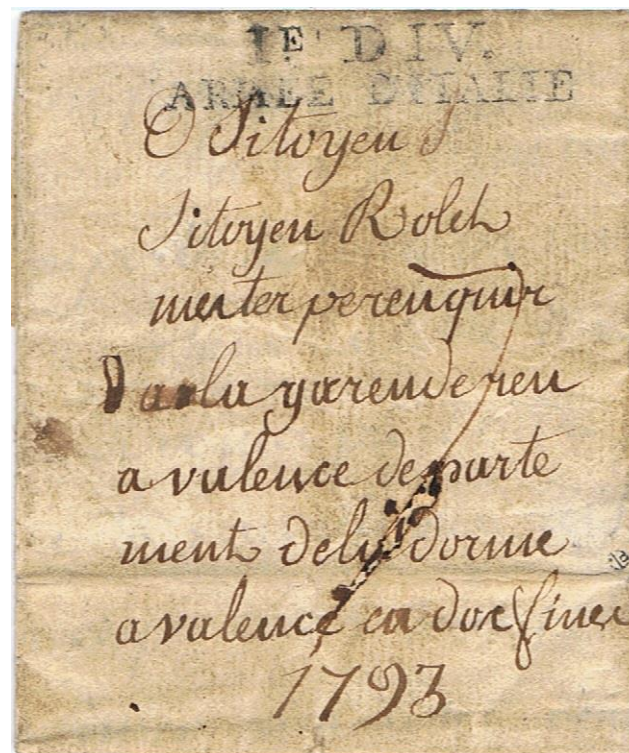 1E DIV.
ARMÉE D'ITALIE
O Sitoyen S
Sitoyen Roleh
mester perenquier
la
a valence departe
ment dela dorme
a valence en docfinee
1793